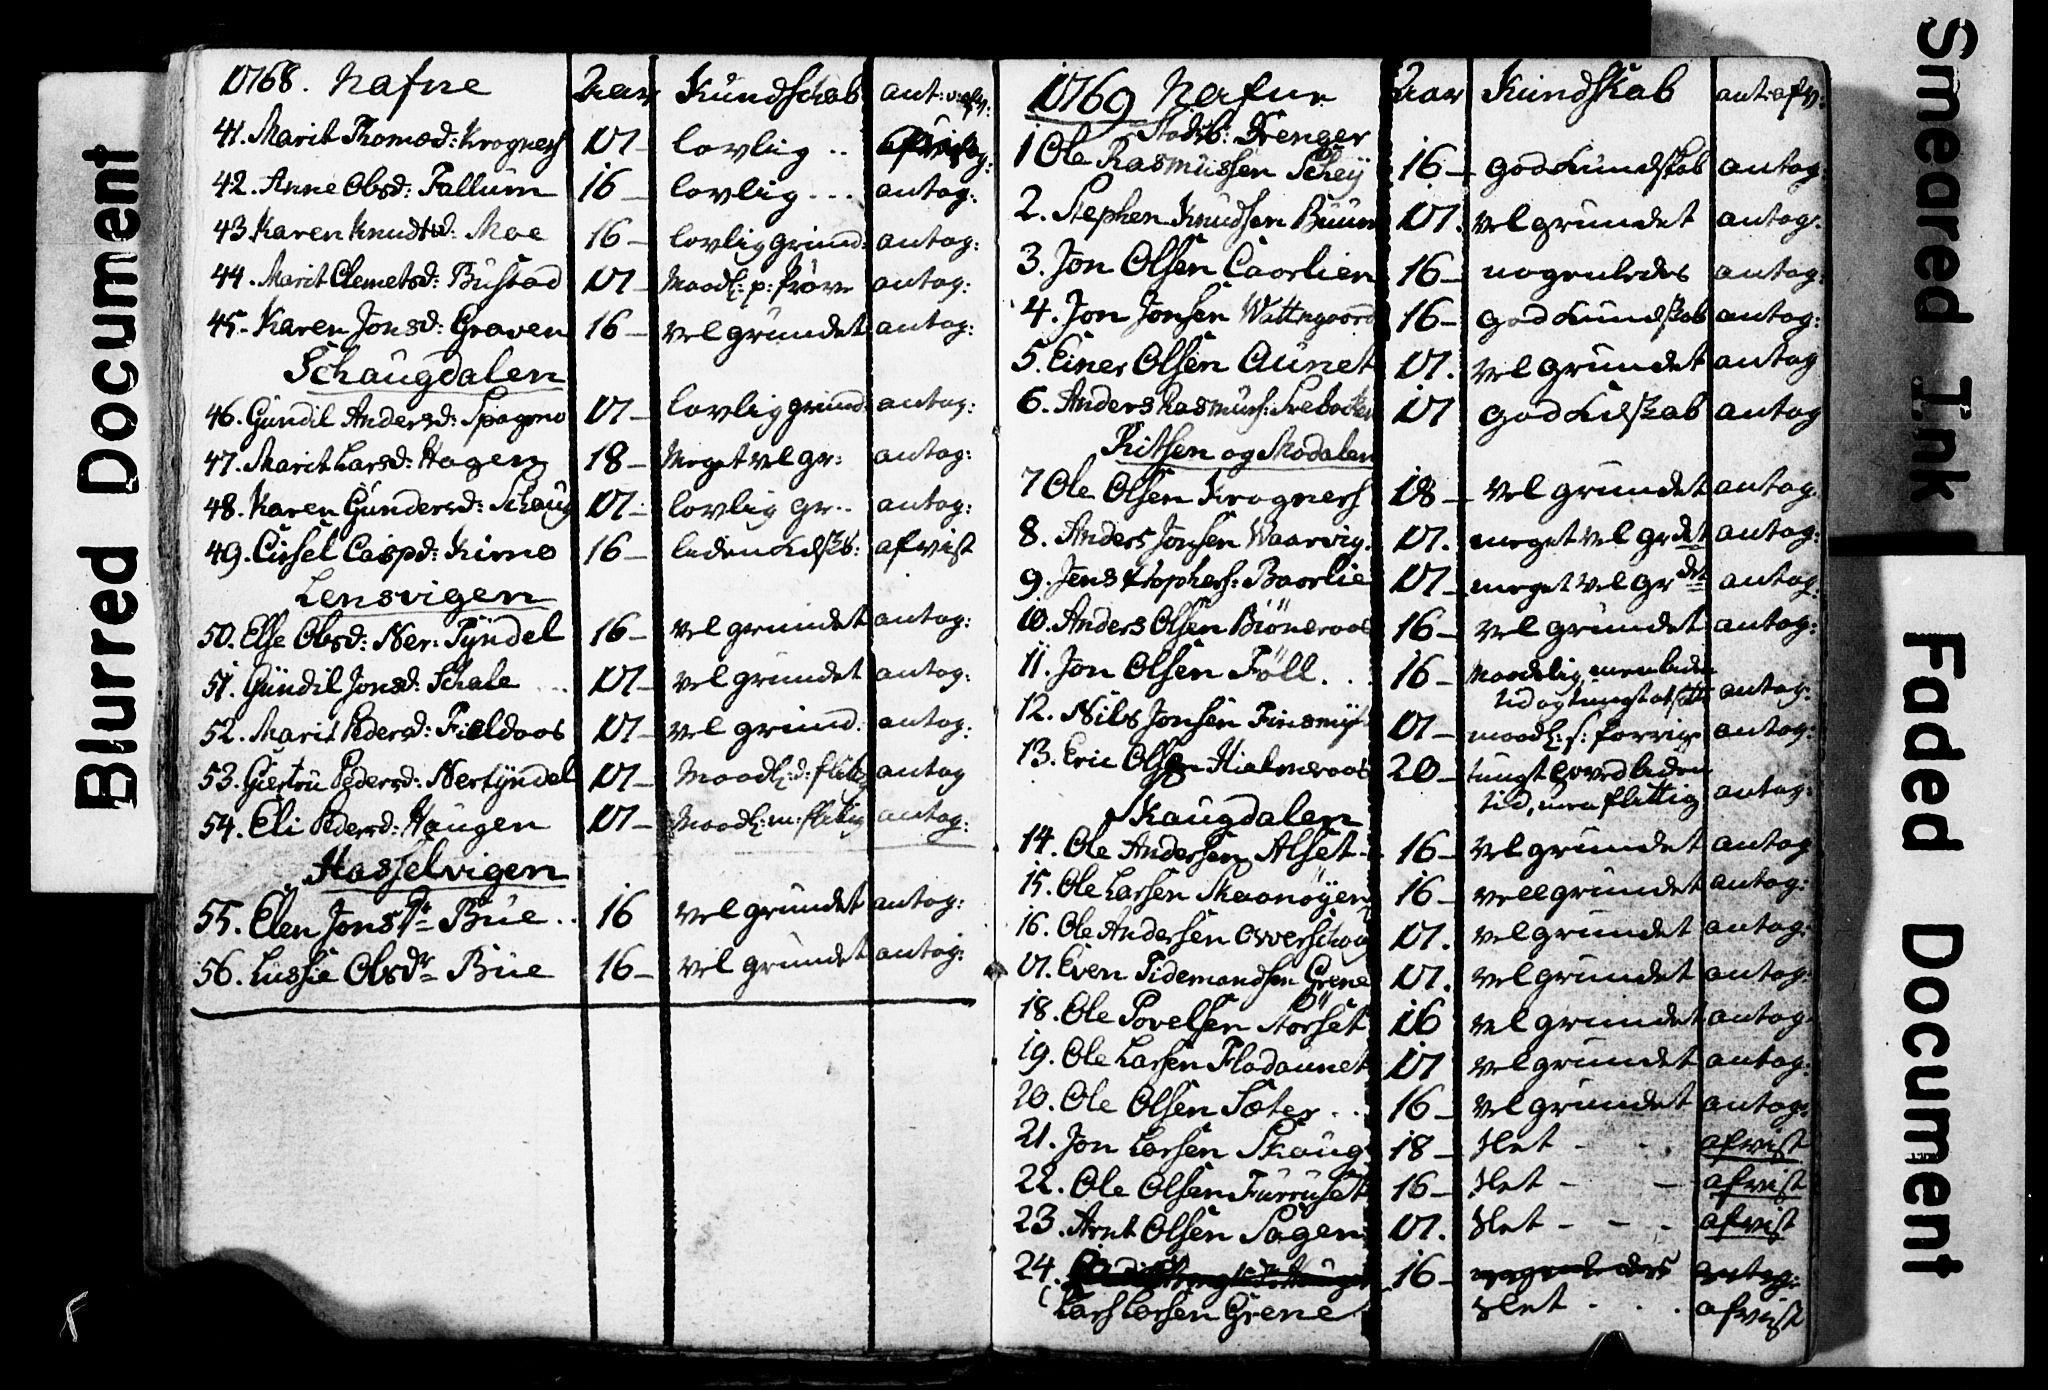 Blurred Document
1768. Nafne Aar Kundschab ant: u: afv:
41. Marit Thomæd: Krogness 17 – lovlig .. antag:
42. Anne Olsd: Fallum 16 – lovlig ... antag:
43 Karen Knudtsd: Moe 16 – lovlig grund: antag:
44. Marit Clemetsd: Bustad 17 – Maadl: p: Prøve antag:
45. Karen Jonsd: Graven 16 – vel grundet antag:
Schaugdalen
46. Gundil Andersd: Spagmo 17 – lovlig grund: antag:
47. Marit Larsd: Hagen 18 – Meget vel gr: antag:
48. Karen Gundersd: Schaug 17 – lovlig gr.. antag:
49. Cissel Caspd: Kirne 16 – liden Kdskb: afvist
Lensvigen
50. Else Olsd: Ner: Tyndel 16 – vel grundet antag:
51. Gundil Jonsd: Schale ... 17 – vel grundet antag:
52. Marit Pedersd: Fieldaas 17 – vel grund: antag:
53. Giertru Pedersd: Nertyndel 17 – Maadl: d: flitig antag
54. Eli Pedersd: Haugen 17 – Maadl: m: flitig antag:
Hasselvigen
55. Elen Jonsdr Büe .. 16 vel grundet antag:
56. Lussie Olsdr Büe 16 – vel grundet antag:
1769 Nafne Aar Kundskab ant: afv:
Stadsb: Drenger
1 Ole Rasmussen Schey 16 – god Kundskab antag:
2. Stephen Knudsen Buum 17. vel grundet antag:
3. Jon Olsen Caarlien 16 – nogenledes antag:
4. Jon Jonsen Wattngaard 16 – god Kundskab antag:
5. Einer Olsen Aunet 17. vel grundet antag
6. Anders Rasmuss: 17 god Kdskab antag
Ritsen og Modalen
7 Ole Olsen Krogness 18 – vel grundet antag:
8. Anders Jonsen Waarvig. 17. meget vel grdet antag:
9. Jens Baarlie 17 – meget vel grdet antag:
10. Anders Olsen Biöneraas 16 – vel grundet antag:
11. Jon Olsen Föll .. 16 – Maadelig, men liden
tid og tungt antag:
12. Nils Jonsen Finsmyr 17 – maadl: f: forrige antag:
13. Eric Olsen Hielmeraas 20 – tungt hoved liden
tid, men flittig antag:
Skaugdalen
14. Ole Andersen Alset 16 – vel grundet antag
15. Ole Larsen Skaanöyen 16 – vell grundet antag:
16. Ole Andersen Overschaug 17. vel grundet antag:
17. Even Tidemandsen Grene 17. vel grundet antag:
18. Ole Povelsen Störset 16 vel grundet antag:
19. Ole Larsen Fladaunet 17 vel grundet antag:
20. Ole Olsen Sæter .. 16 – vel grundet antag:
21. Jon Larsen Skaug 18 – slet - - . afvist
22. Ole Olsen Furruset 16 – slet - - afvist
23. Arnt Olsen Sagen 17. slet - - . afvist
24. 16 – nogenledes antag:
Lars Larsen Grene slet . . . afvist
Smeared Ink
Faded Document